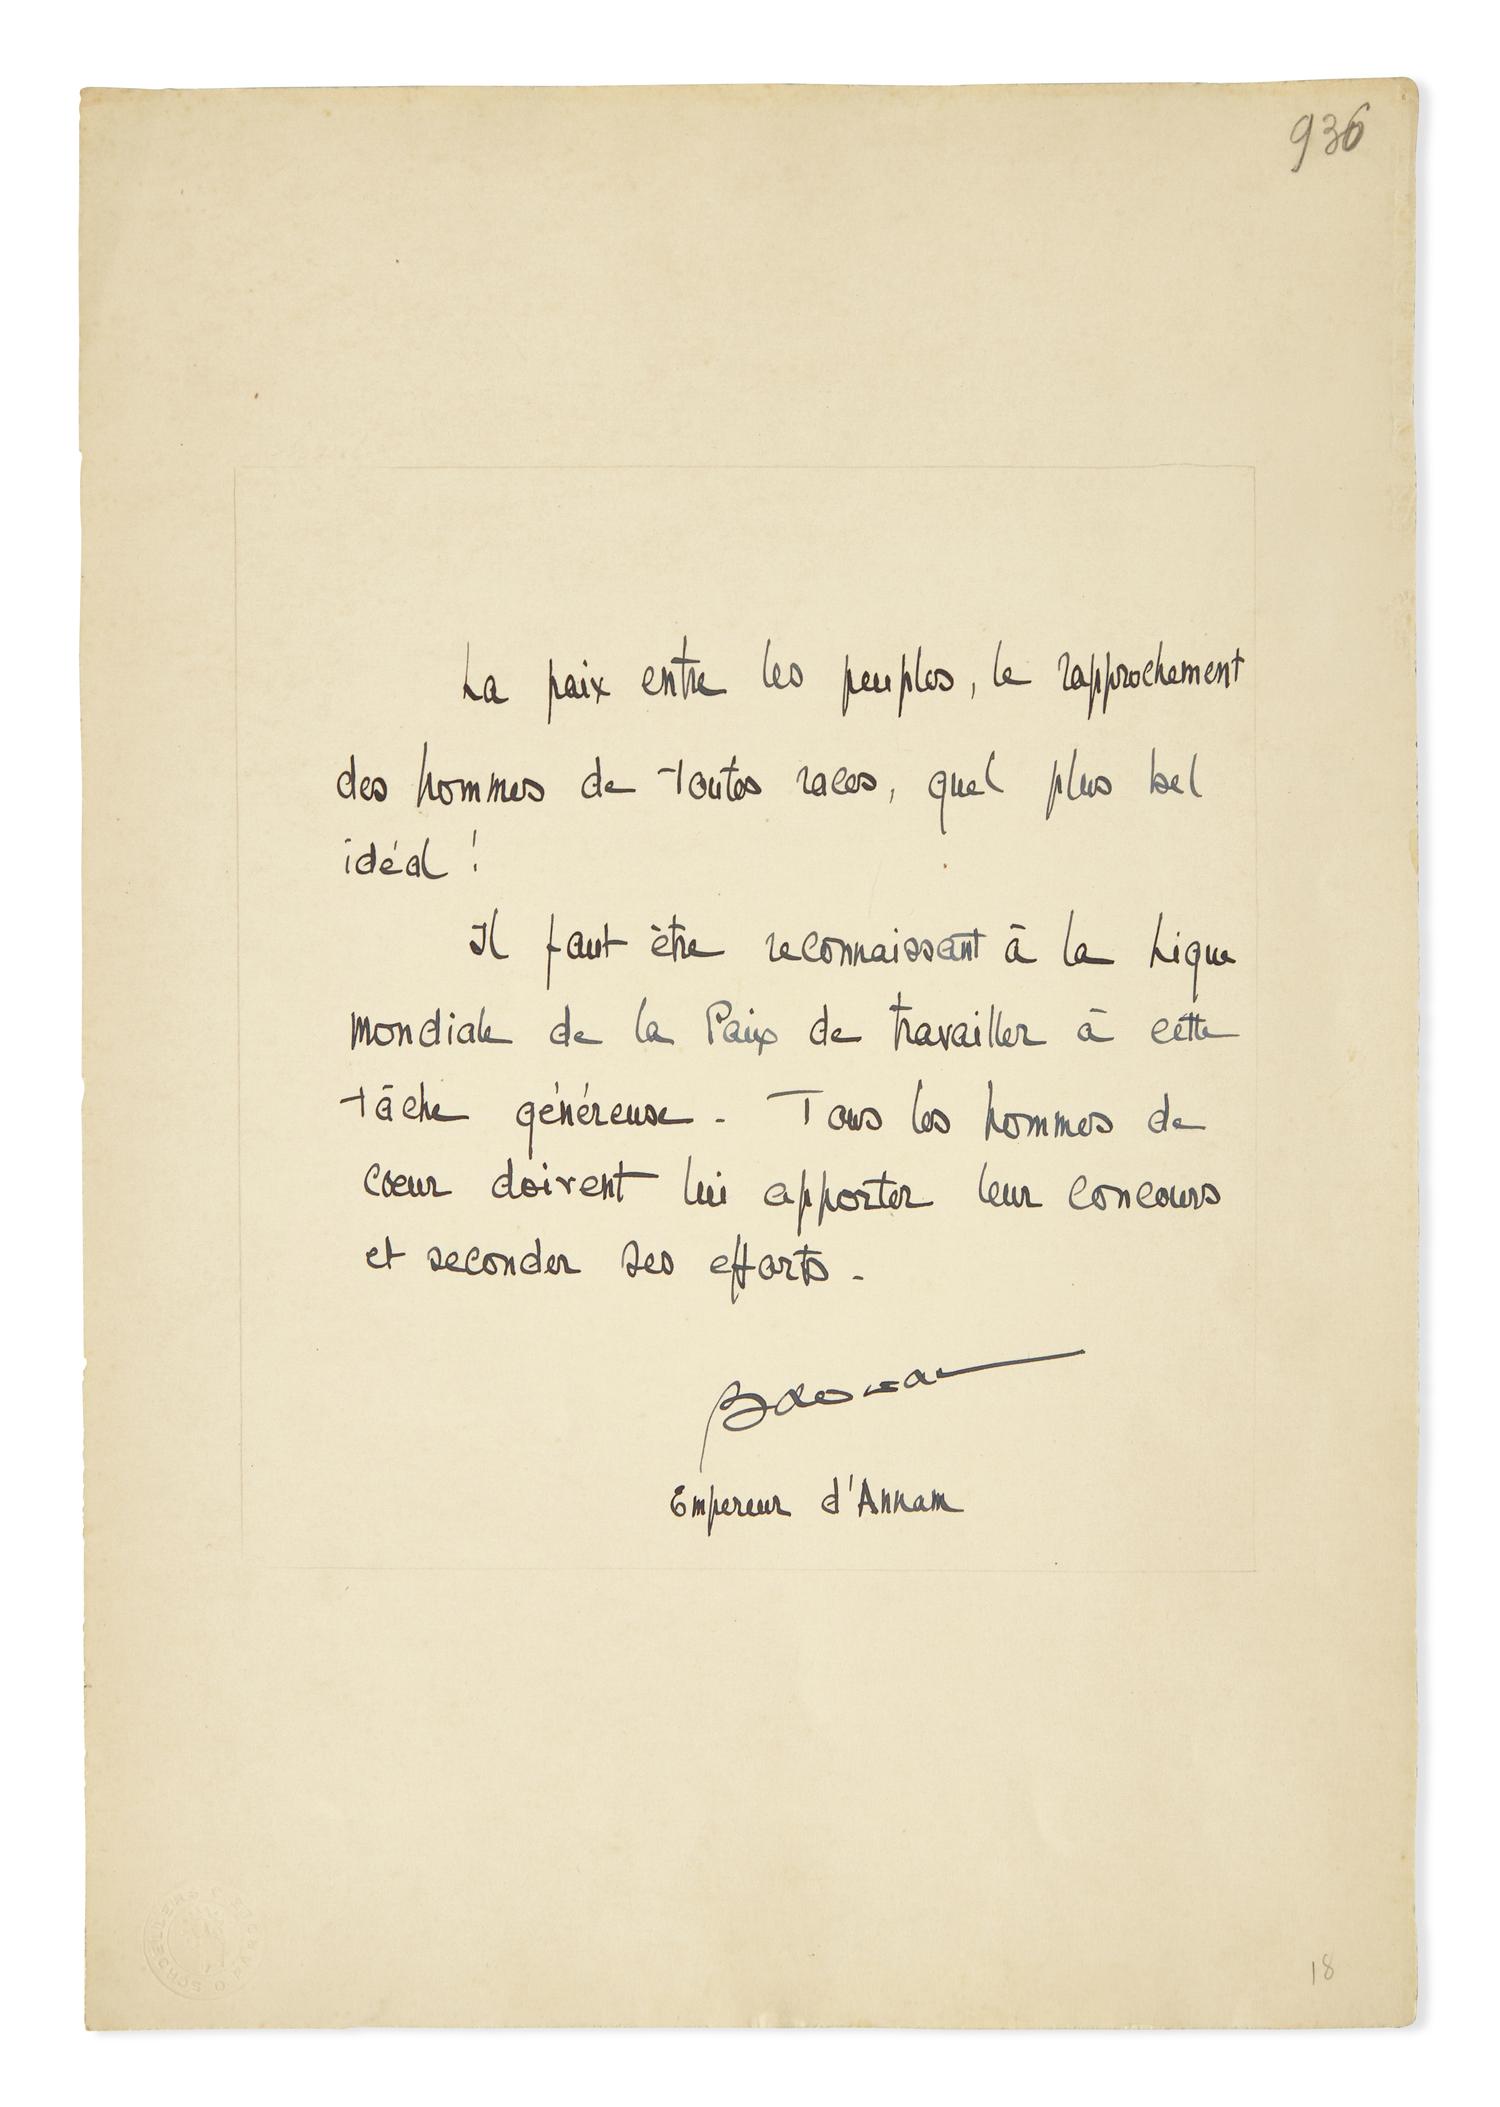 936
La paix entre les peuples, le rapprochement
des hommes de toutes races, quel plus bel
idéal !
Il faut être reconnaissant à la Ligue
mondiale de la Paix de travailler à cette
tâche généreuse. Tous les hommes de
cœur doivent lui apporter leur concours
et seconder ses efforts.
Empereur d'Annam
18